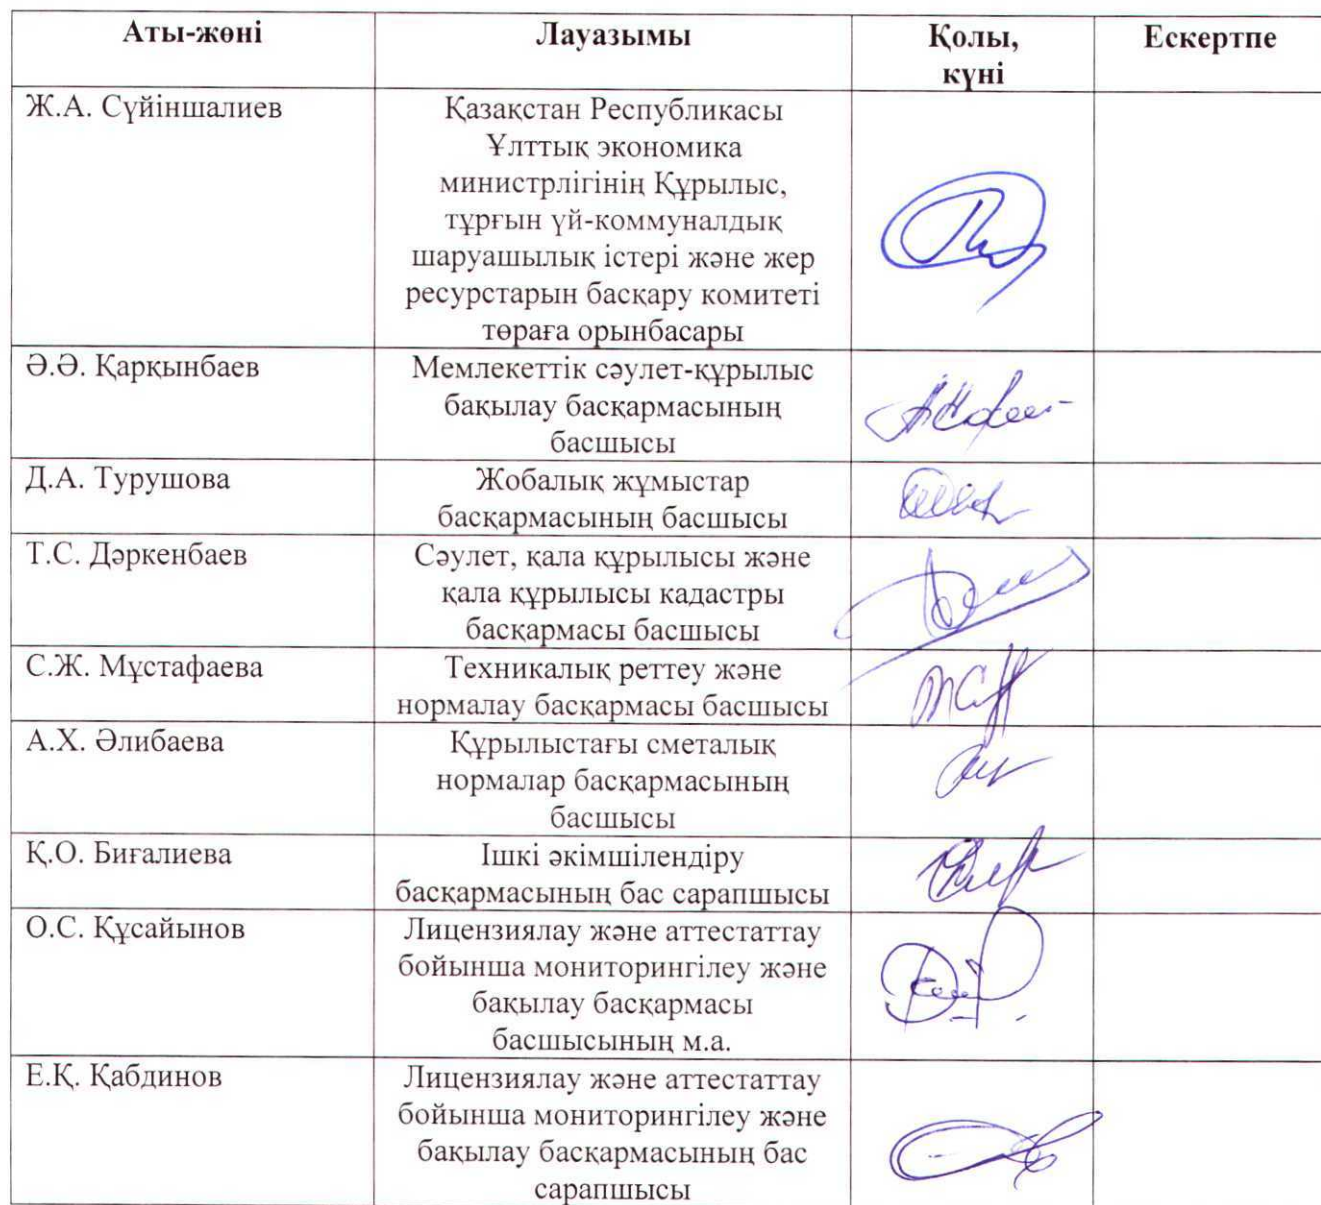 Аты-жөні
Лауазымы
Қолы,
күні
Ескертпе
Ж.А. Сүйіншалиев
Қазақстан Республикасы
Ұлттық экономика
министрлігінің Құрылыс,
тұрғын үй-коммуналдық
шаруашылық істері және жер
ресурстарын басқару комитеті
төраға орынбасары
Ә.Ә. Қарқынбаев
Мемлекеттік сәулет-құрылыс
бақылау басқармасының
басшысы
Д.А. Турушова
Жобалық жұмыстар
басқармасының басшысы
Т.С. Дәркенбаев
Сәулет, қала құрылысы және
қала құрылысы кадастры
басқармасы басшысы
С.Ж. Мұстафаева
Техникалық реттеу және
нормалау басқармасы басшысы
А.Х. Әлибаева
Құрылыстағы сметалық
нормалар басқармасының
басшысы
Қ.О. Биғалиева
Ішкі әкімшілендіру
басқармасының бас сарапшысы
О.С. Құсайынов
Лицензиялау және аттестаттау
бойынша мониторингілеу және
бақылау басқармасы
басшысының м.а.
Е.Қ. Қабдинов
Лицензиялау және аттестаттау
бойынша мониторингілеу және
бақылау басқармасының бас
сарапшысы